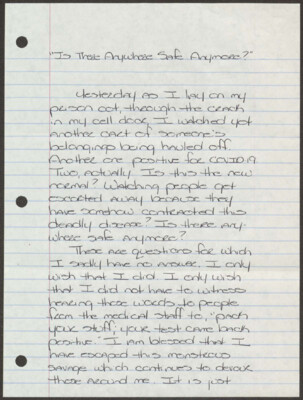 "Is There Anywhere Safe Anymore?"
Yesterday as I lay on my
prison cot, through the crack
in my cell door, I watched yet
another cart of someone's
belongings being hauled off.
Another one positive for COVID19.
Two, actually. Is this the new
normal? Watching people get
escorted away because they
have somehow contracted this
deadly disease? Is there any-
where safe anymore?
These are questions for which
I sadly have no answer. I only
wish that I did. I only wish
that I did not have to witness
hearing those words to people
from the medical staff to, "pack
your stuff; your test came back
positive." I am blessed that I
have escaped this monstrous
savage which continues to devour
those around me. It is just